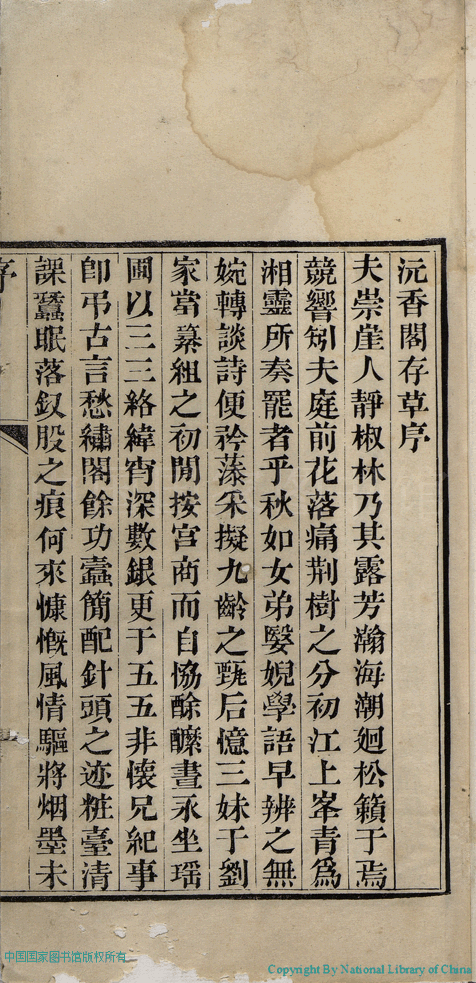 沅香閣存草序
夫崇崖人靜椒林乃其露芳瀚海潮廻松籟于焉
競響矧夫庭前花落痛荆樹之分初江上峯青爲
湘靈所奏罷者乎秋如女弟嫛婗學語早辨之無
婉轉談詩便衿藻采擬九齡之甄后憶三妹于劉
家當纂組之初閒按宮商而自恊酴醾晝永坐瑶
圃以三三絡緯宵深數銀更于五五非懷兄紀事
卽弔古言愁繡閣餘功蠹簡配針頭之迹粧臺清
課蠶眠落釵股之痕何來慷慨風情驅將烟墨未
序
中国国家图书馆版权所有
Copyright By National Library of China